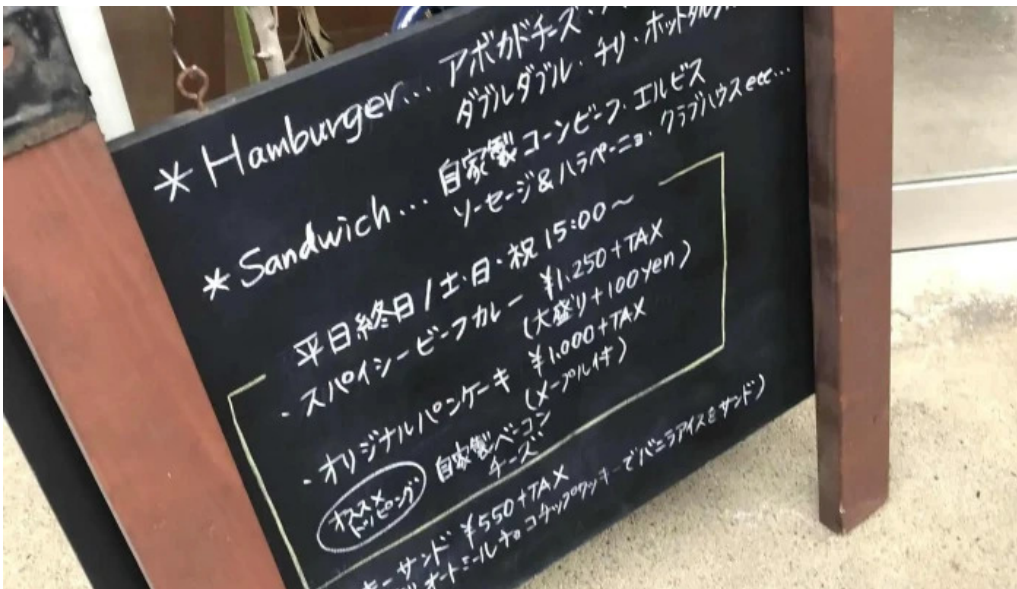 * Hamburger... アボカドチーズ・
ダブルダブル・チリ・ホットタルタル
* Sandwich... 自家製コーンビーフ・エルビス
ソーセージ&ハラペーニョ・クラブハウスetc...
平日終日/土・日・祝 15:00~
・スパイシービーフカレー ¥1,250+TAX
(大盛り+100yen)
・オリジナルパンケーキ ¥1,000+TAX
(メープル付)
オススメ
トッピング
自家製ベーコン
チーズ
キーサンド ¥550+TAX
オートミールチョコチップクッキーでバニラアイスをサンド)